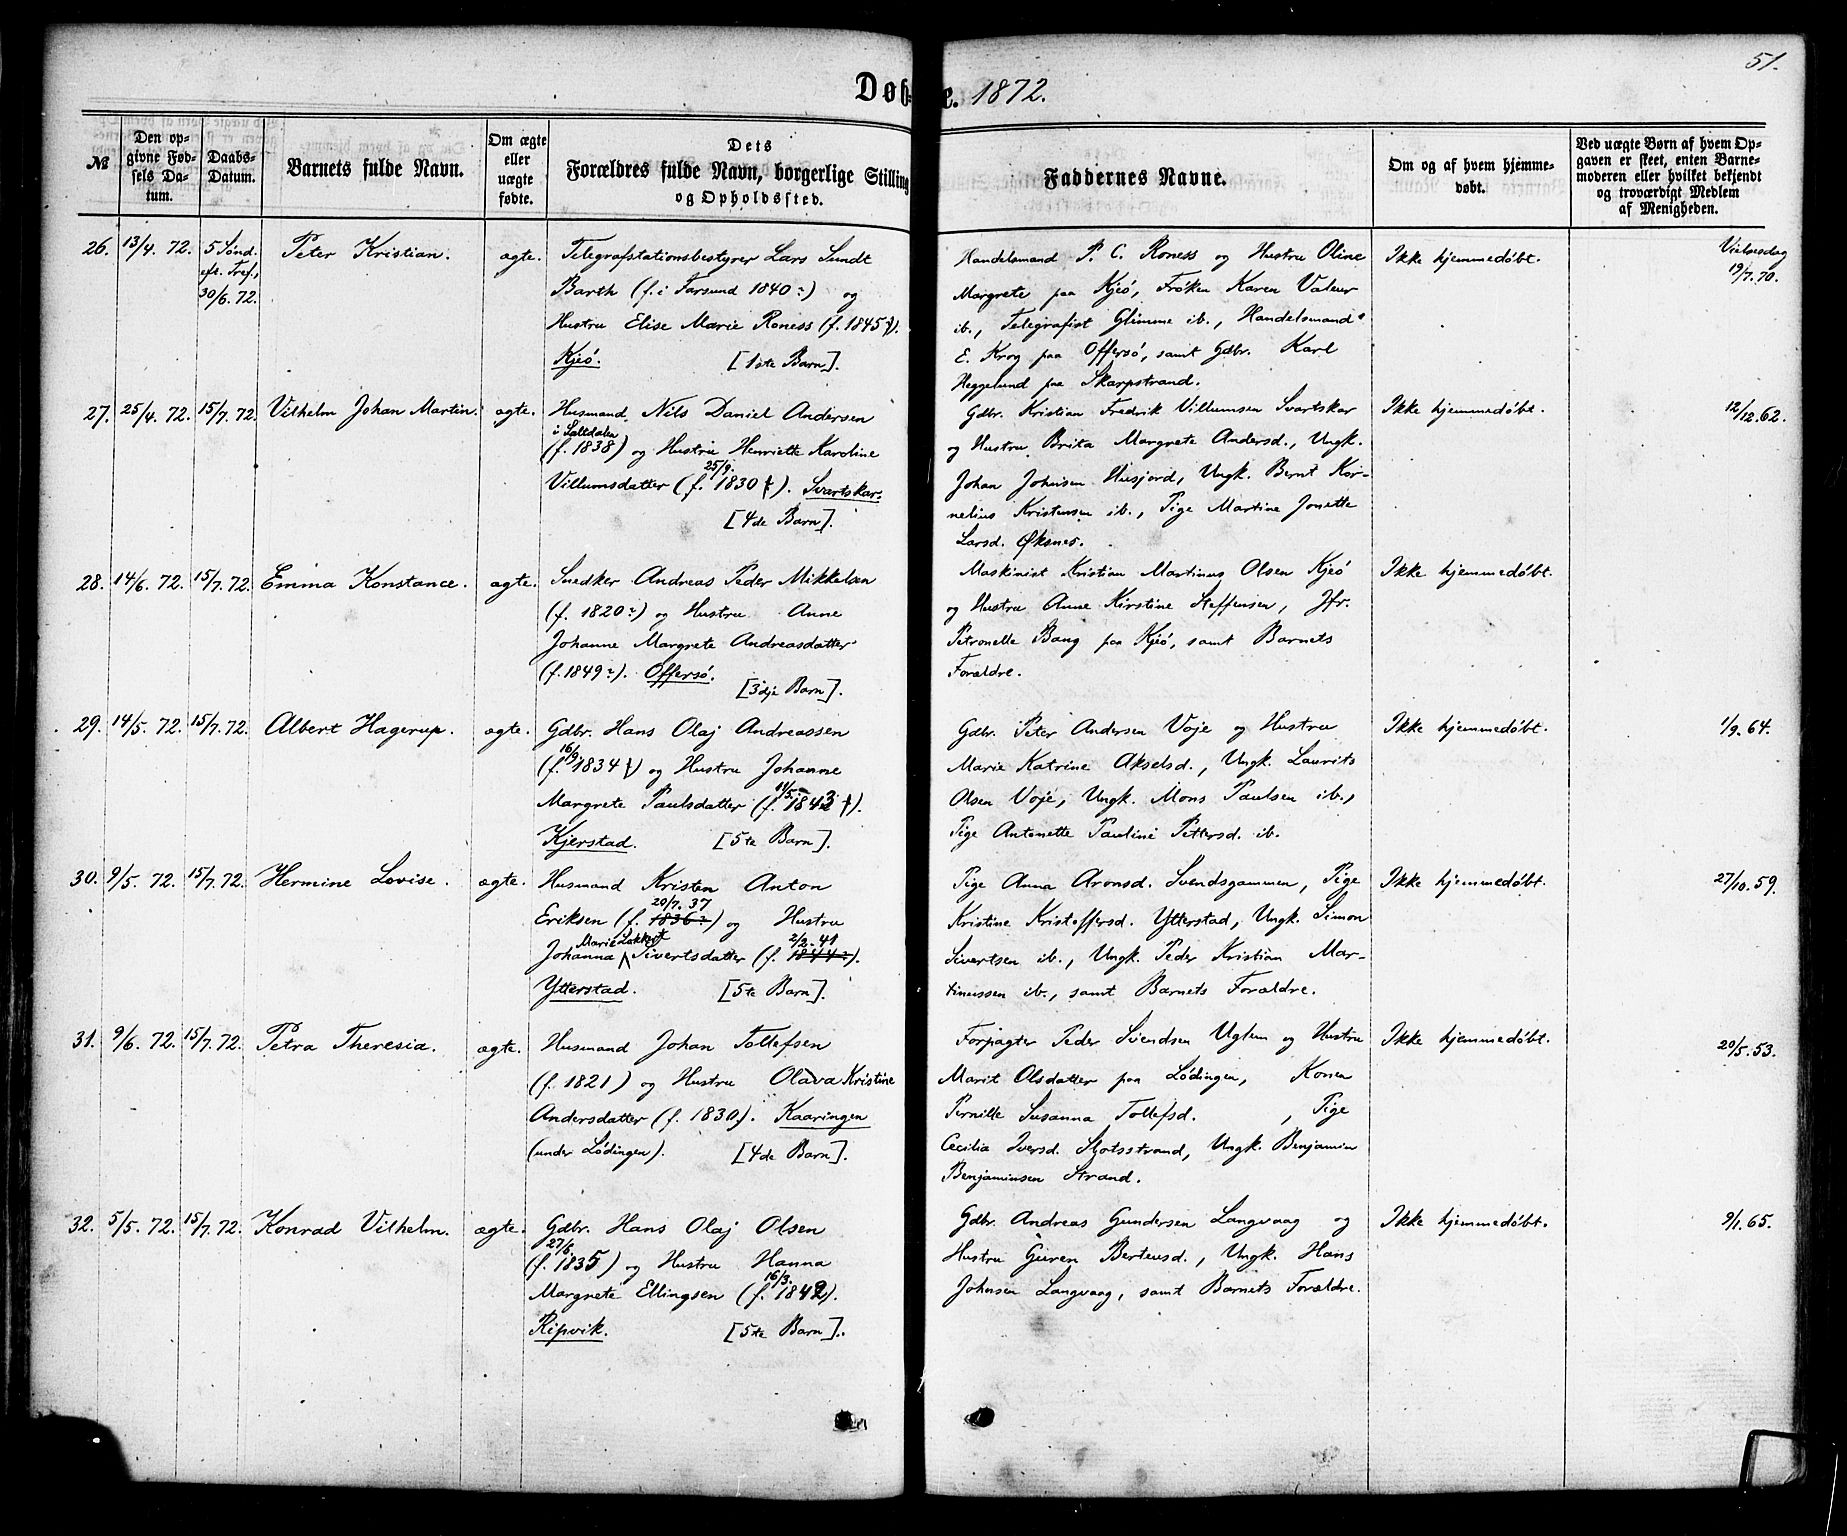 51.
Døbte. 1872.
№
Den opgivne Fødsels Datum.
Daabs-Datum.
Barnets fulde Navn.
Om ægte eller uægte fødte.
Dets Forældres fulde Navn, borgerlige Stilling og Opholdssted.
Faddernes Navne.
Om og af hvem hjemmedøbt.
Ved uægte Børn af hvem Opgaven er skeet, enten Barnemoderen eller hvilket bekjendt og troværdigt Medlem af Menigheden.
26. 13/4. 72. 5 Sønd. eft. Tref., 30/6. 72. Peter Kristian. ægte.
Telegrafstationsbestyrer Lars Sundt
Barth (f. i Farsund 1840 ?) og
Hustru Elise Marie Roness (f. 1845 ).
Kjeö. [1ste Barn].
Handelsmand P. C. Roness og Hustru Oline
Margrete paa Kjeö, Fröken Karen Valeur
ib., Telegrafist Glimme ib., Handelsmand
E. Krog paa Offersö, samt Gdbr. Karl
Heggelund paa Skarpstrand.
Ikke hjemmedöbt.
Vielsesdag
19/7. 70.
27. 25/4. 72. 15/7. 72. Vilhelm Johan Martin. ægte.
Husmand Nils Daniel Andersen
i Saltdalen
(f. 1838) og Hustru Henriette Karoline
25/9.
Villumsdatter (f. 1830 ). Svartskar.
[4de Barn].
Gdbr. Kristian Fredrik Villumsen Svartskar
og Hustru Brita Margrete Andersd., Ungk.
Johan Johnsen Husjord, Ungk. Bernt Kor-
nelius Kristensen ib., Pige Martine Jonette
Larsd. Øksnes.
Ikke hjemmedöbt.
12/12. 62.
28. 14/6. 72. 15/7. 72. Emma Konstance. ægte.
Snedker Andreas Peder Mikkelsen
(f. 1820 ?) og Hustru Anne
Johanne Margrete Andreasdatter
(f. 1849 ?). Offersö. [3dje Barn].
Maskinist Kristian Martinus Olsen Kjeö
og Hustru Anne Kirstine Steffensen, Jfr.
Petronelle Bang paa Kjeö, samt Barnets
Forældre.
Ikke hjemmedöbt.
29. 14/5. 72. 15/7. 72. Albert Hagerup. ægte.
Gdbr. Hans Olaj Andreassen
16/9
(f. 1834 ) og Hustru Johanne
11/5.
Margrete Paulsdatter (f. 1843 ).
Kjerstad. [5te Barn].
Gdbr. Peter Andersen Voje og Hustru
Marie Katrine Akselsd., Ungk. Laurits
Olsen Voje, Ungk. Mons Paulsen ib.,
Pige Antonette Pauline Pettersd. ib.
Ikke hjemmedöbt.
1/9. 64.
30. 9/5. 72. 15/7. 72. Hermine Lovise. ægte.
Husmand Kristen Anton
20/7. 37
Eriksen (f. 1836 ?) og Hustru
Marie 2/2. 41
Johanna Sivertsdatter (f. 1844 ?).
Ytterstad. [5te Barn].
Pige Anna Aronsd. Svendsgammen, Pige
Kristine Kristoffersd. Ytterstad, Ungk. Simon
Sivertsen ib., Ungk. Peder Kristian Mar-
tinussen ib., samt Barnets Forældre.
Ikke hjemmedöbt.
27/10. 59.
31. 9/6. 72. 15/7. 72. Petra Theresia. ægte.
Husmand Johan Tollefsen
(f. 1821) og Hustru Olava Kristine
Andersdatter (f. 1830). Kaaringen
(under Lödingen). [4de Barn].
Forpagter Peder Svendsen Uglem og Hustru
Marit Olsdatter paa Lödingen, Konen
Pernille Susanna Tollefsd. , Pige
Cecilia Iversd. Slotsstrand, Ungk. Benjamin
Benjaminsen Strand.
Ikke hjemmedöbt.
20/5. 53.
32. 5/5. 72. 15/7. 72. Konrad Vilhelm. ægte.
Gdbr. Hans Olaj Olsen
27/6.
(f. 1835) og Hustru Hanna
16/3.
Margrete Ellingsen (f. 1842).
Ripvik. [5te Barn].
Gdbr. Andreas Gundersen Langvaag og
Hustru Guren Berteusd., Ungk. Hans
Johnsen Langvaag, samt Barnets Forældre.
Ikke hjemmedöbt.
9/1. 65.